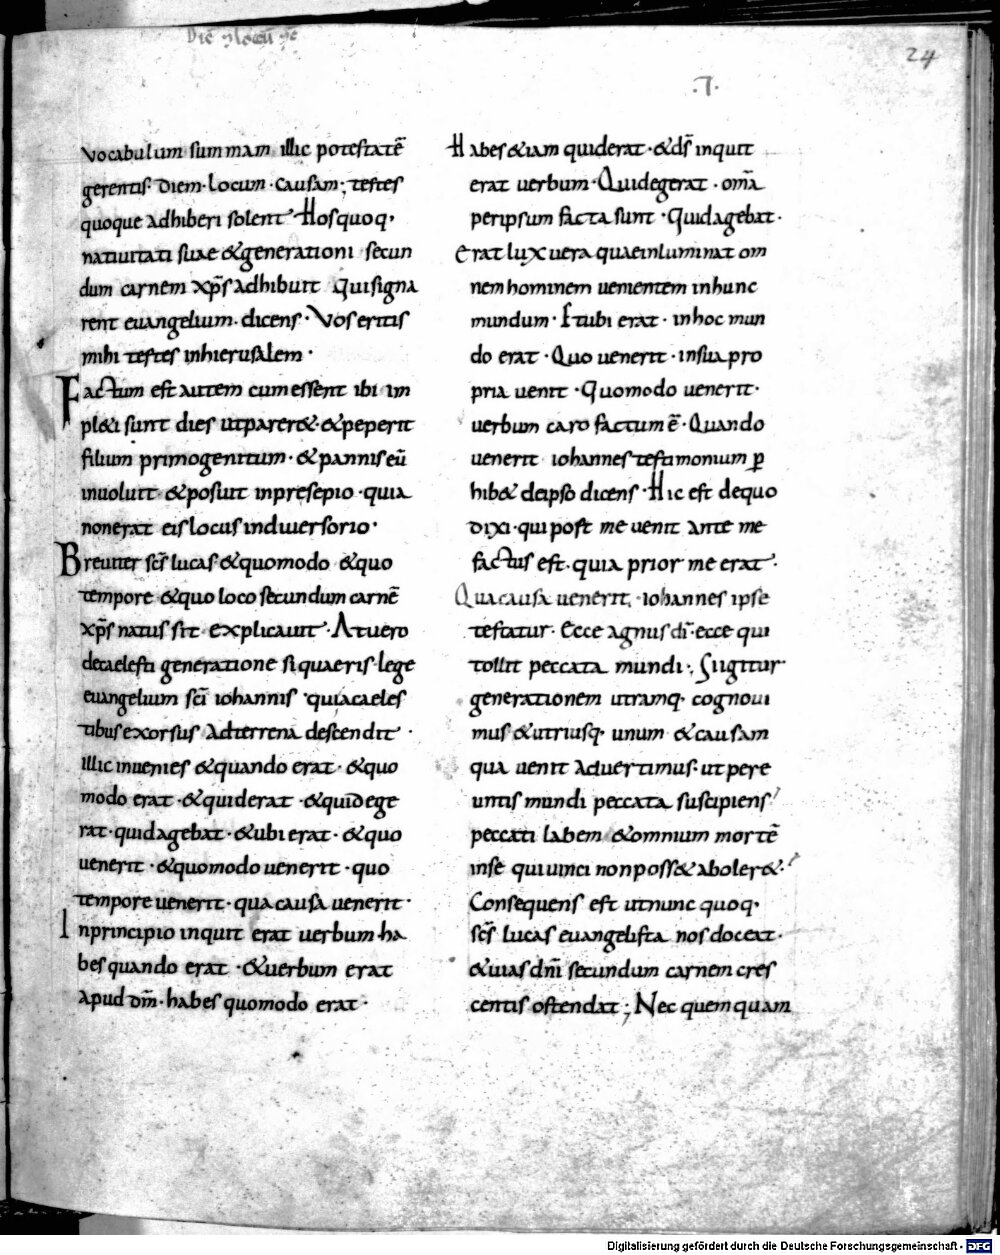 24
.7.
vocabulum summam illic potestatē
gerentis· diem· locum· causam; testes
quoque adhiberi solent· Hos quoq·
natiuitati suae & generationi secun
dum carnem xp̄s adhibuit Qui signa
rent euangelium· dicens· Vos eritis
mihi testes in hierusalem·
Factum est autem cum essent ibi im
pl&i sunt dies ut parer&· & peperit
filium primogenitum· & pannis eū
inuoluit & posuit in presepio· quia
non erat eis locus in diuersorio·
Breuiter sc̄s lucas & quomodo & quo
tempore & quo loco secundum carnē
xp̄s natus sit explicauit· At uero
de caelesti generatione si quaeris· lege
euangelium sc̄i iohannis qui a caeles
tibus exorsus ad terrena descendit·
illic inuenies & quando erat· & quo
modo erat· & quid erat· & quid ege
rat· quid agebat· & ubi erat· & quo
uenerit· & quomodo uenerit· quo
tempore uenerit· qua causa uenerit·
In principio inquit erat uerbum ha
bes quando erat· & uerbum erat
apud dm̄· habes quomodo erat·
Habes & iam quid erat· & ds̄ inquit
erat uerbum· Quid egerat· om̄a
per ipsum facta sunt· Quid agebat·
Erat lux uera quae inluminat om
nem hominem uenientem in hunc
mundum· Et ubi erat· in hoc mun
do erat· Quo uenerit· in sua pro
pria uenit· Quomodo uenerit·
uerbum caro factum ē· Quando
uenerit iohannes testimonium ꝑ
hib& de ipso dicens· Hic est de quo
dixi· qui post me uenit ante me
factus est· quia prior me erat·
Qua causa uenerit, iohannes ipse
testatur· Ecce agnus dī· ecce qui
tollit peccata mundi·, Si igitur
generationem utramq· cognoui
mus & utriusq· unum & causam
qua uenit aduertimus· ut pere
untis mundi peccata suscipiens
peccati labem & omnium mortē
in se qui uinci non poss& aboler&·
Consequens est ut nunc quoq·
sc̄s lucas euangelista nos doceat·
& uias dn̄i secundum carnem cres
centis ostendat; Nec quemquam
Digitalisierung gefördert durch die Deutsche Forschungsgemeinschaft - DFG